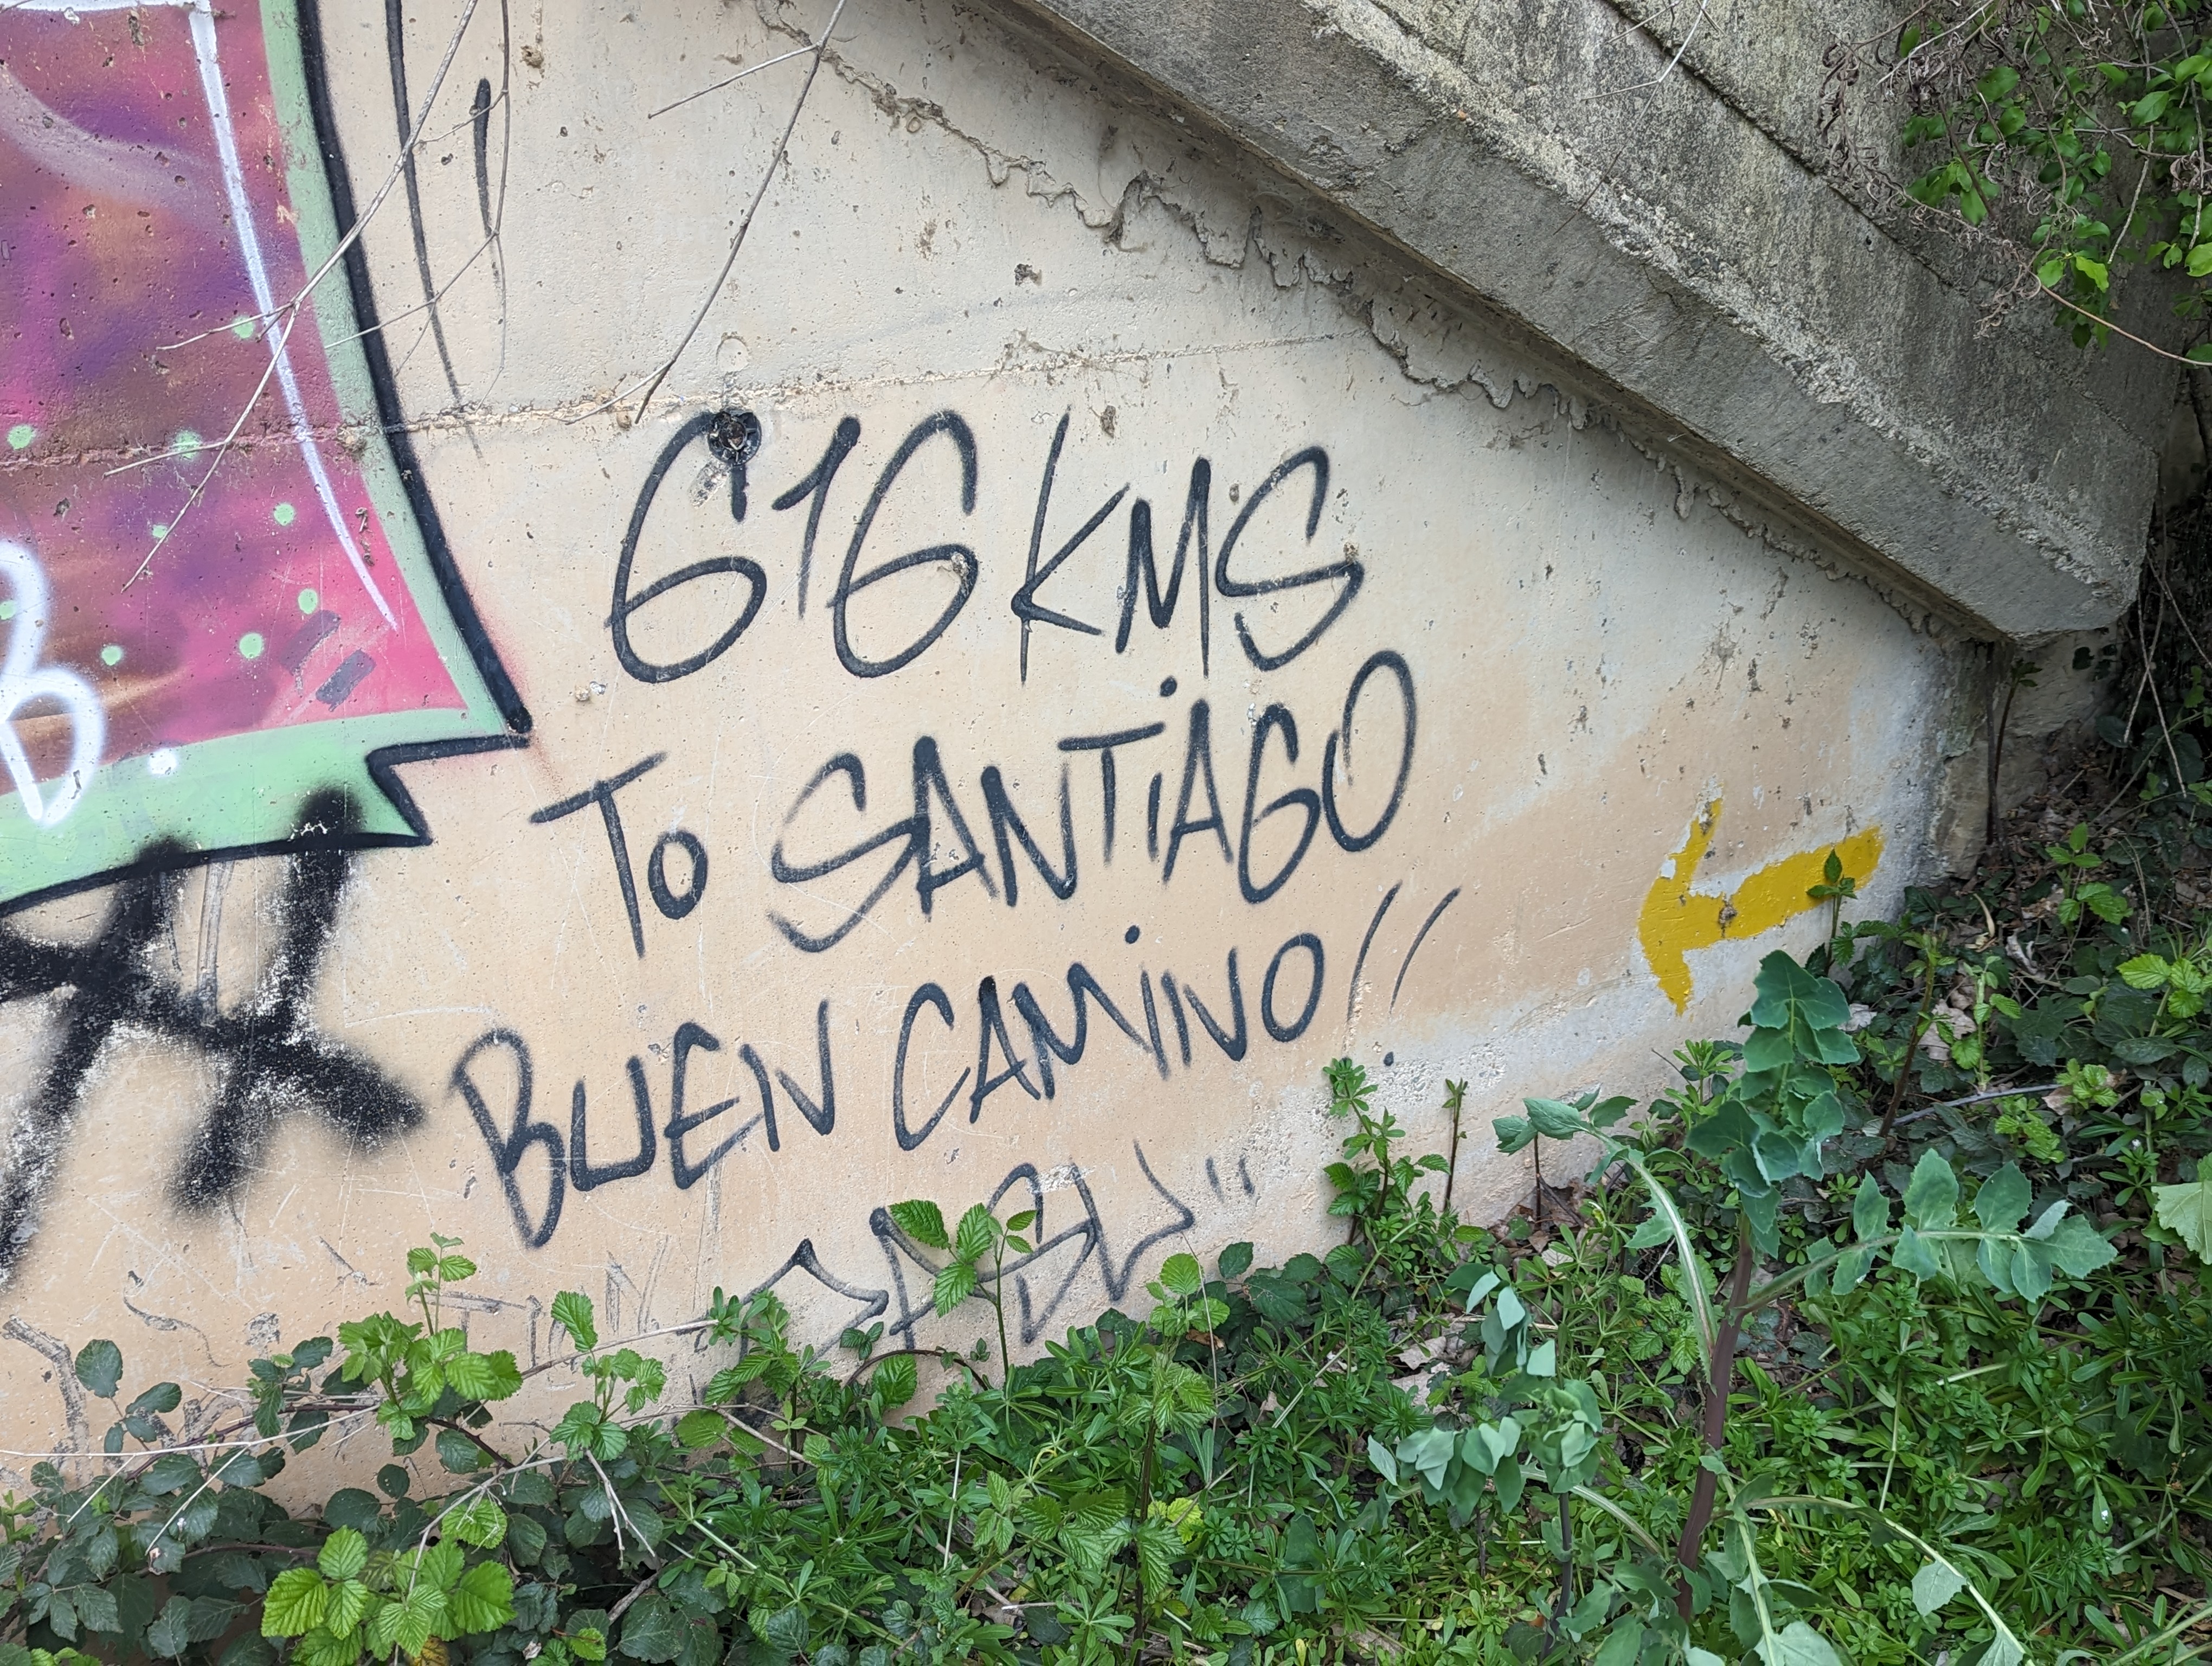 616 KMS
To SANTiAGO
BUEN CAMiNO!!